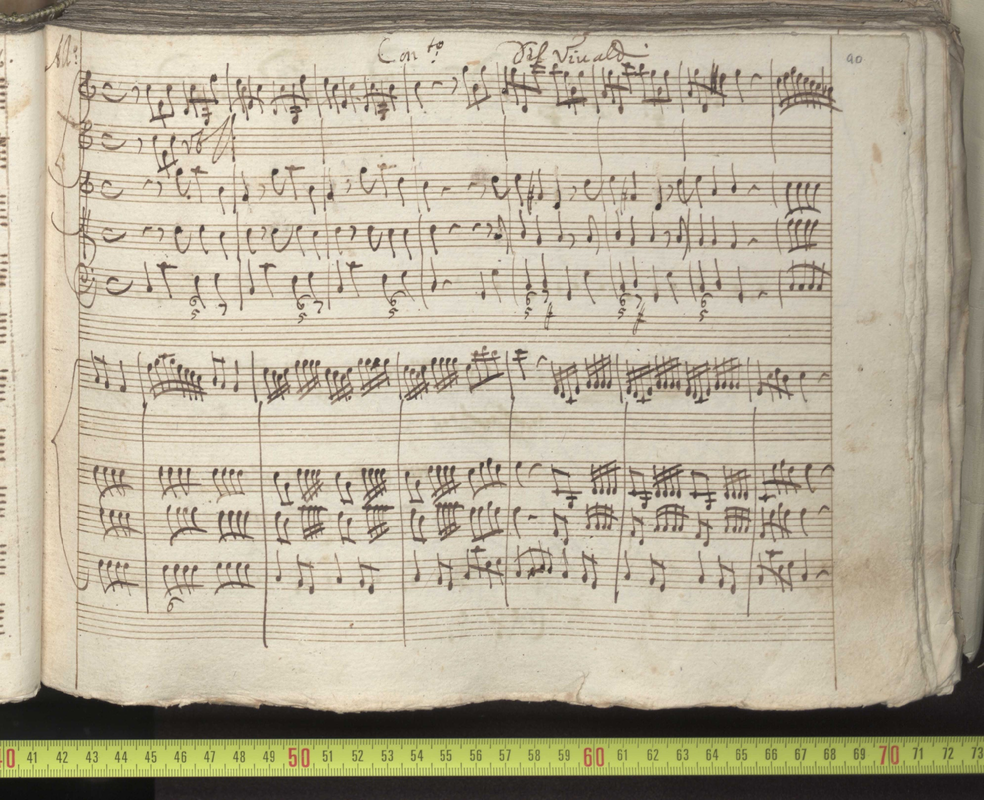 All:º Con.to Del Viualdi
90
6 5 7 6 5 7 6 5 6 5 6 5 6 5
6
40 41 42 43 44 45 46 47 48 49 50 51 52 53 54 55 56 57 58 59 60 61 62 63 64 65 66 67 68 69 70 71 72 73